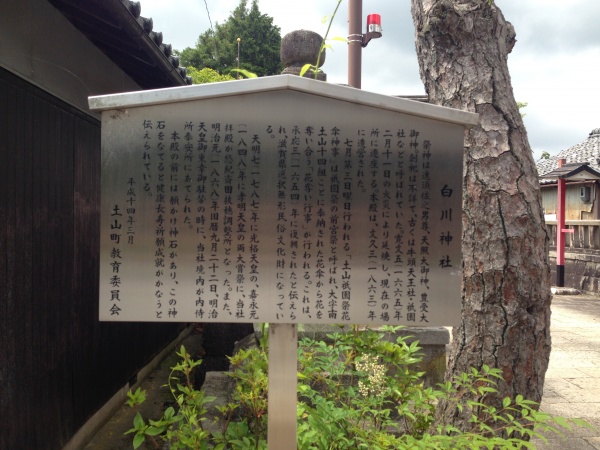 白川神社
祭神は速須佐之男尊、天照大御神、豊受大
御神。創祀は不詳で、古くは牛頭天王社・祇園
社などと呼ばれていた。寛文五(一六六五)年
二月十一日の火災により延焼し、現在の場
所に遷座する。本殿は、文久三(一八六三)年
に造営された。
七月第三日曜日行われる「土山祇園祭花
傘神事」は祇園祭の前宮祭と呼ばれ、大字南
土山十四組ごとに奉納された花傘から花を
奪い合う「花奪い行事」が行われる。これは、
承応三(一六五四)年に復興されたと伝えら
れ、滋賀県選択無形民俗文化財になってい
る。
天明七(一七八七)年に光格天皇の、嘉永元
(一八四八)年に孝明天皇の両大嘗祭に、当社
拝殿が悠紀斎田抜穂調整所となった。また、
明治元(一八六八)年旧暦九月二十二日、明治
天皇御東幸御駐輦の時に、当社境内が内侍
所奉安所にあてられた。
本殿の前には願かけ神石があり、この神
石をなでると健康長寿祈願成就がかなうと
伝えられている。
平成十四年三月
土山町教育委員会